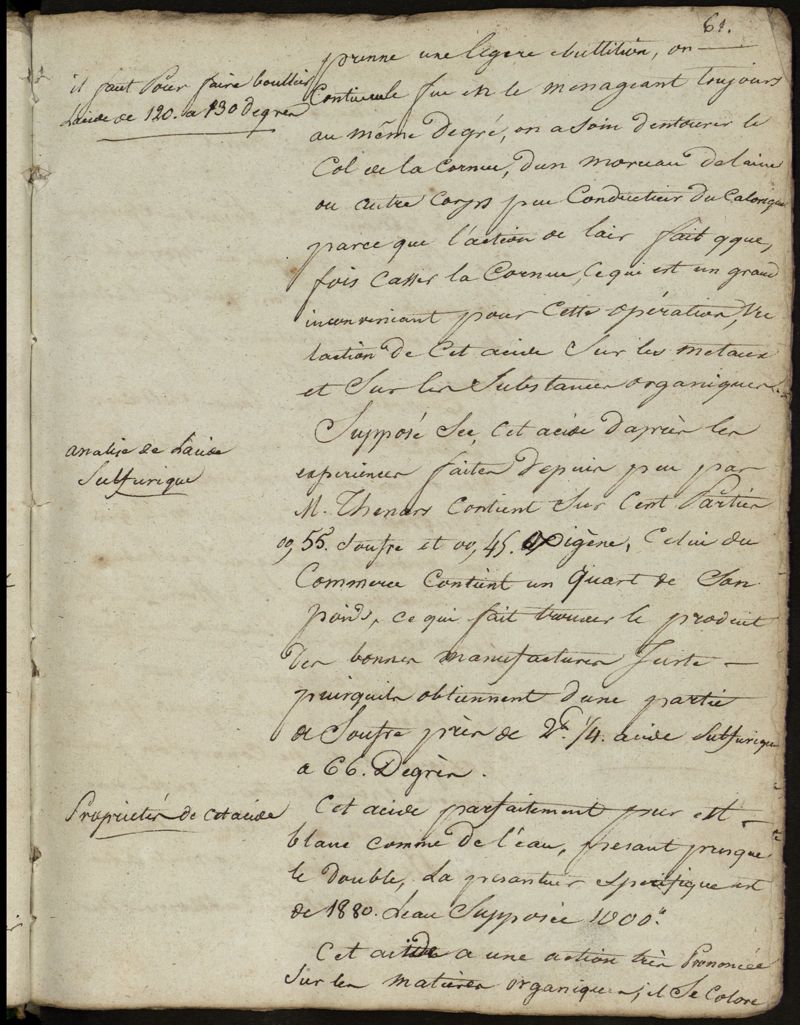 61.
prenne une legere ebullition, on
il faut Pour faire bouillir
Lacide de 120. a 130 Degres
Continue le feu en le menageant toujours
au même Degré, on a Soin dentourer le
Col de la Cornue, dun morceau de laine
ou autre Corps peu Conducteur du Calorique
parce que l'action de lair fait qque,
fois Casser la Cornue, Ce qui est un grand
inconveniant pour Cette opération, Vu
laction de Cet acide Sur les metaux
et Sur les Substances organiques.
analise de Lacide
Sulfurique
Supposé Sec, Cet acide Daprès les
experiences faites Depuis peu par
M. Thenars Contient Sur Cent Parties
00, 55. Soufre et 00, 45. Oxigène, Celui du
Commerce Contient un Quart de Son
poids, Ce qui fait trouver le produit
Des bonnes manufactures Juste
puisquils obtiennent dune partie
de Soufre près de 2 1/4. acide Sulfurique
a 66. Degrès.
Propriétés de Cet acide
Cet acide parfaitement pur est
blanc comme De l'eau, pesant presque
le Double, La pesanteur Specifique est
de 1880. Leau Supposée 1000.
Cet acide a une action très Prononcée
Sur les matieres organiques, il Se Colore